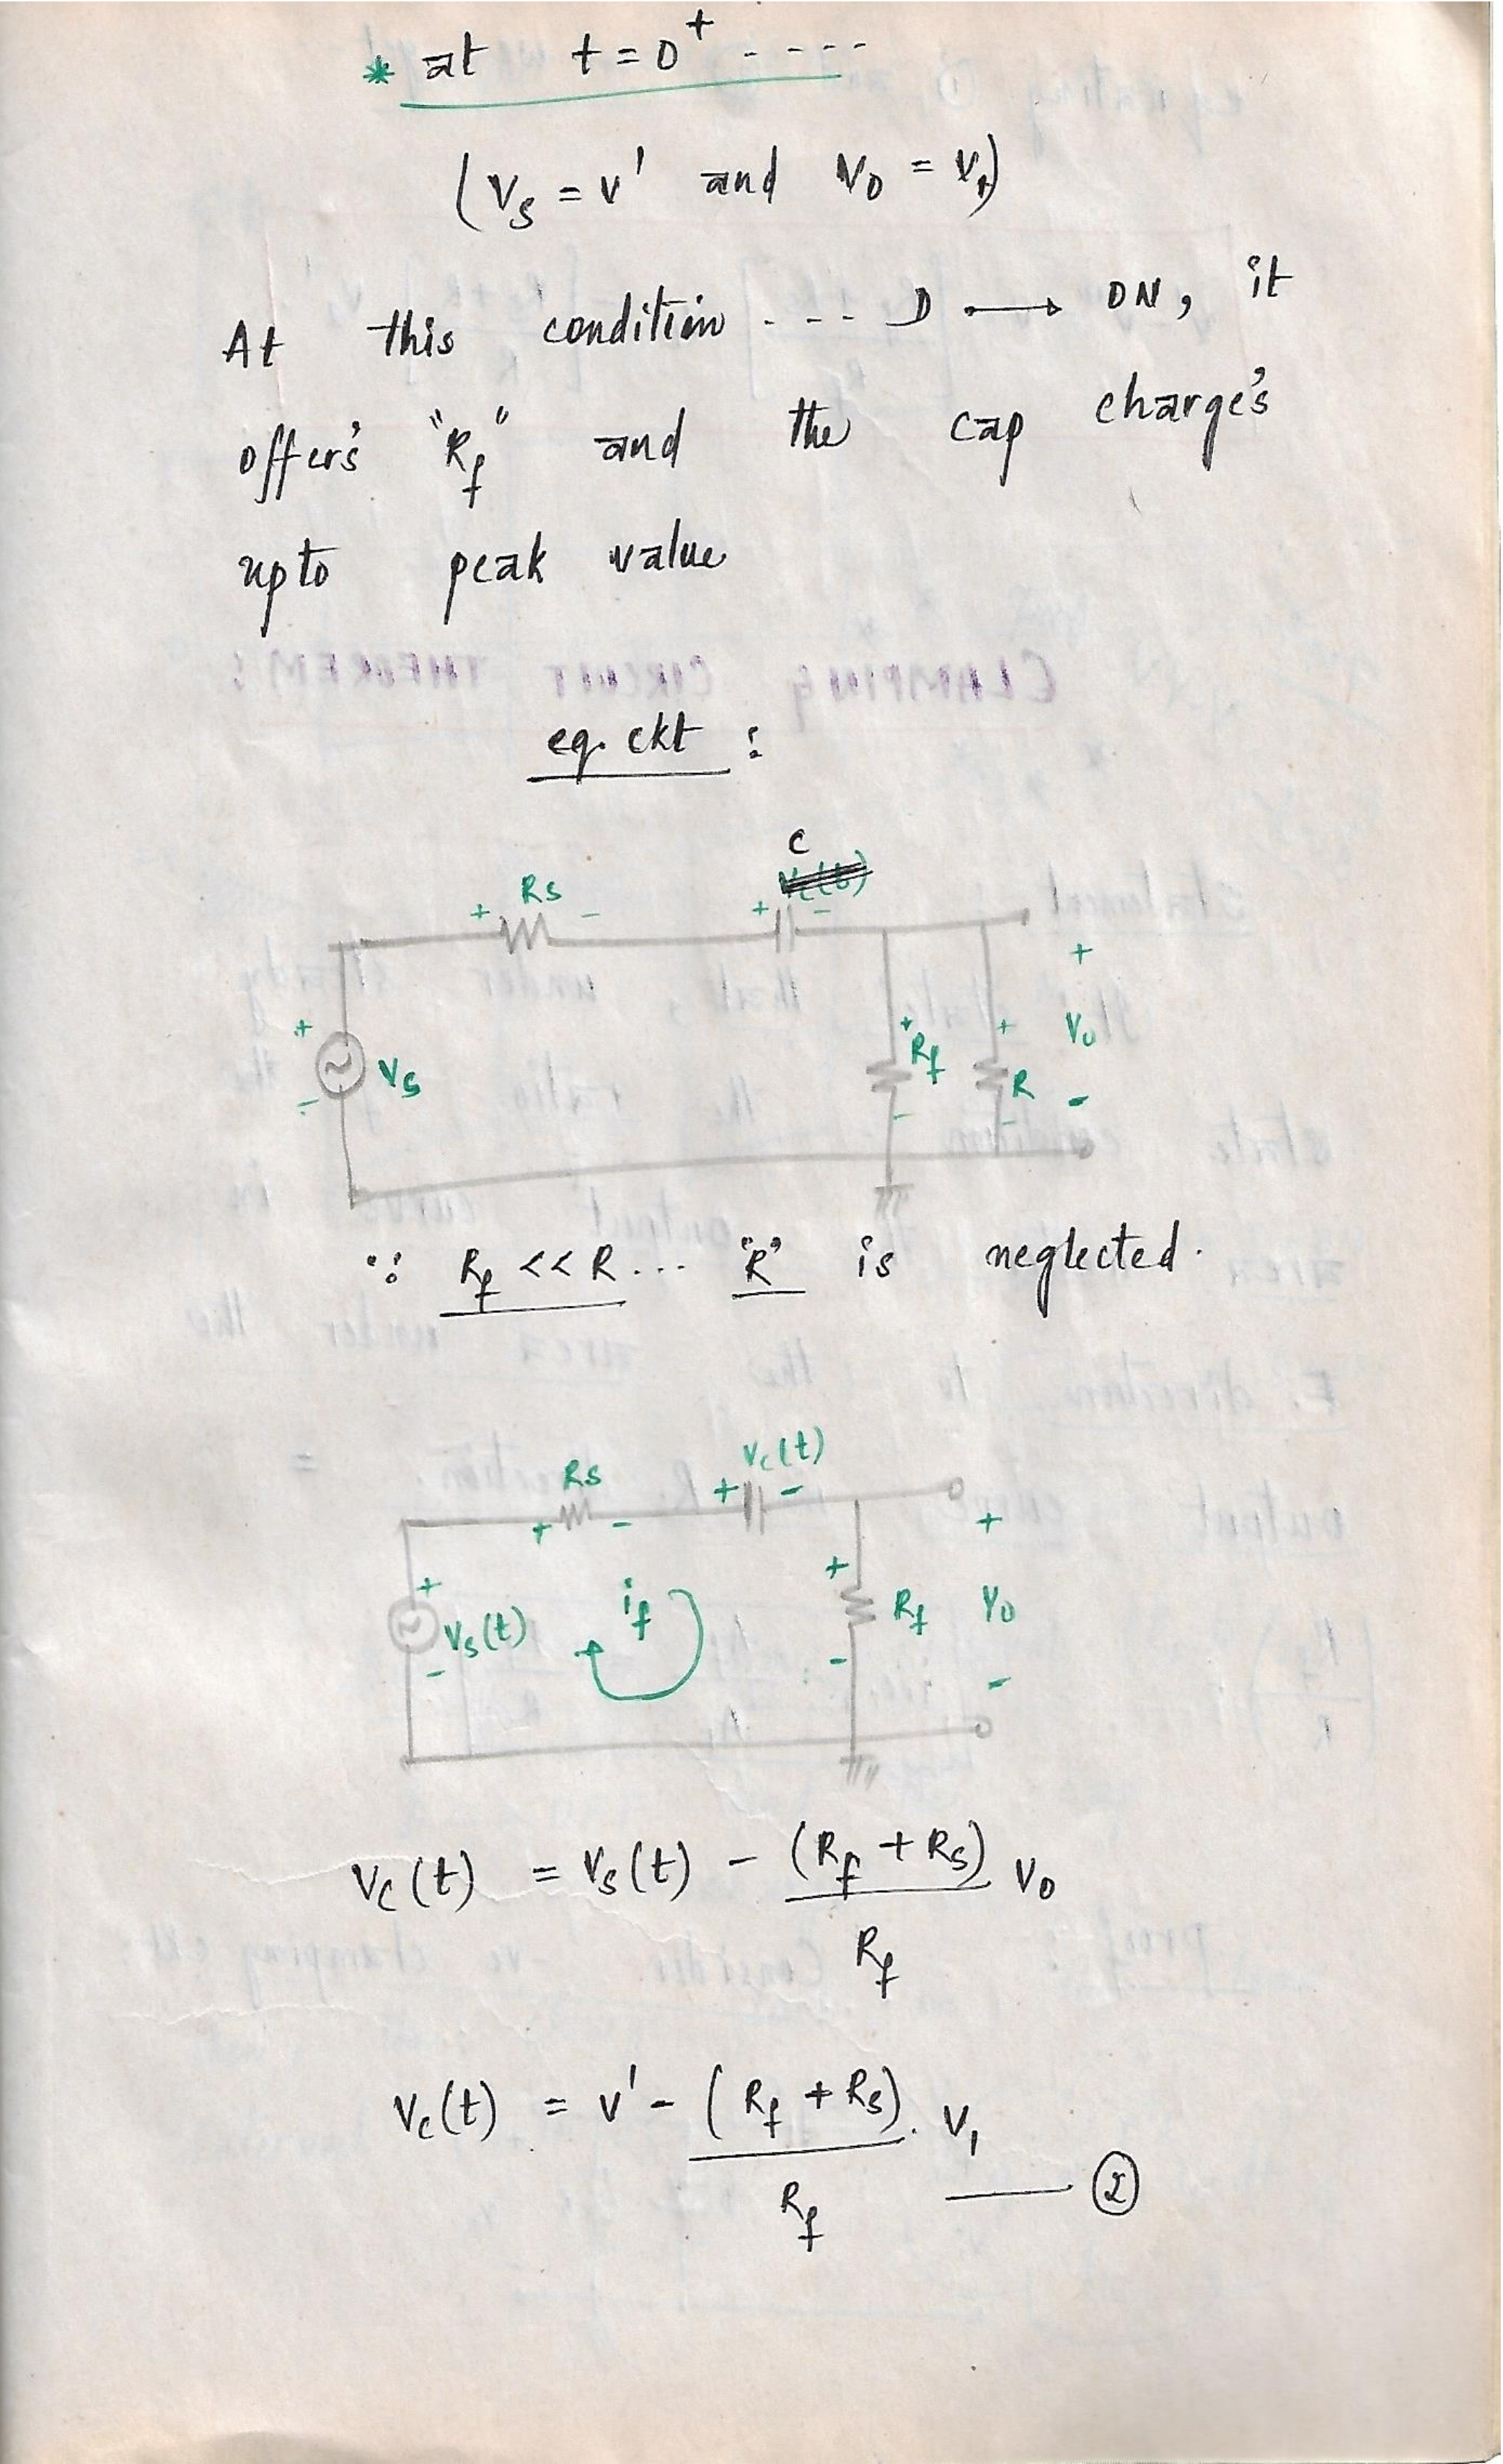 * at t = 0⁺ ----
(Vs = V' and Vo = V₁)
At this condition --- D → ON, it
offer's "Rf" and the cap charge's
upto peak value
eq. ckt :
C
+ Rs - + -
+ Vs -
+ Rf -
+ R -
+ Vo -
∵ Rf << R... "R" is neglected.
Vc(t)
+ Rs - + -
+ Vs(t) -
if
+ Rf -
+ Vo -
Vc(t) = Vs(t) - (Rf + Rs) Vo
Rf
Vc(t) = V' - (Rf + Rs) . V₁
Rf —— ②